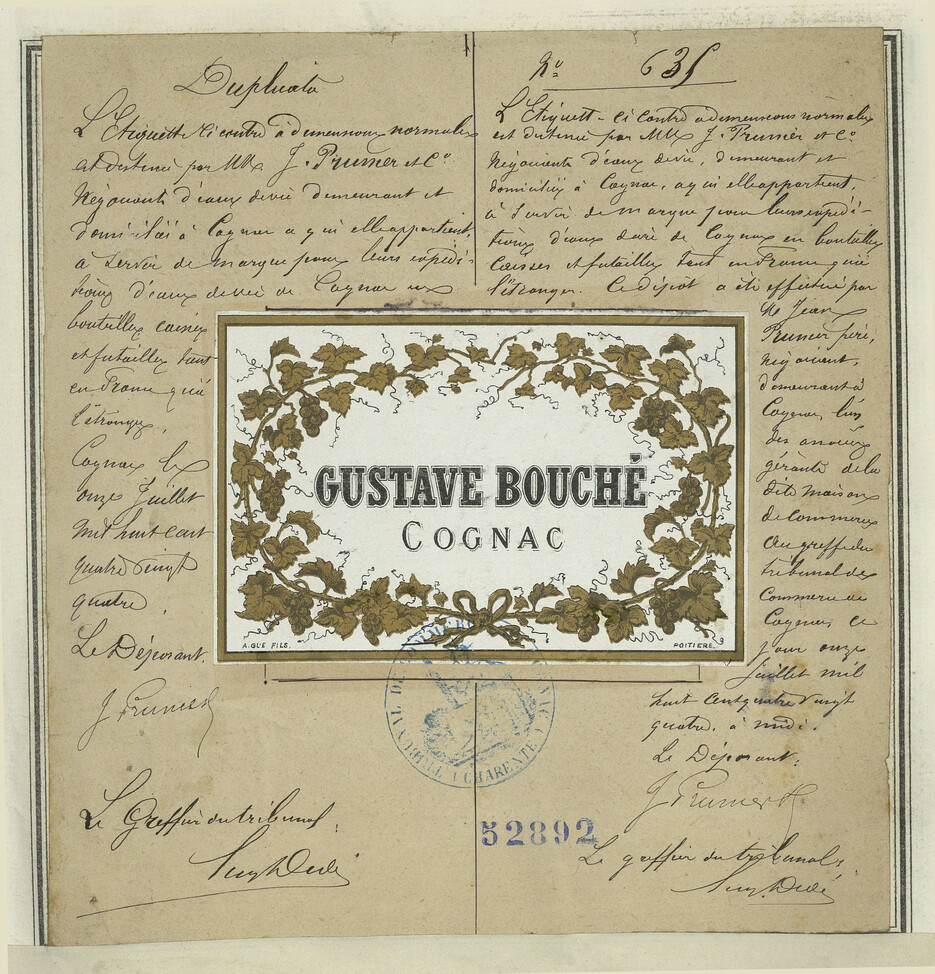 Duplicata
L'Etiquette ci contre à dimensions normales
est destinée par MM. J. Prunier et Cie
Négociants d'eaux de vie demeurant et
domiciliés à Cognac a qui elle appartient,
a servir de marque pour leurs expédi-
tions d'eaux de vie de Cognac en
bouteilles caisses
et futailles tant
en France qu'à
l'étranger.
Cognac le
onze Juillet
mil huit cent
quatre vingt
quatre.
Le Déposant.
J. Prunier
Le Greffier du tribunal,
No 635
L'Etiquette ci contre à dimensions normales
est destinée par MM. J. Prunier et Cie
Négociants d'eaux de vie, demeurant et
domiciliés à Cognac, a qui elle appartient,
à servir de marque pour leurs expédi-
tions d'eaux de vie de Cognac en bouteilles
caisses et futailles tant en France qu'à
l'étranger. Ce dépôt a été effectué par
M. Jean
Prunier père,
négociant,
demeurant à
Cognac, l'un
des associés
gérants de la
dite maison
de commerce
au greffe du
tribunal de
Commerce de
Cognac, ce
jour onze
juillet mil
huit cent quatre vingt
quatre, à midi.
Le Déposant:
J. Prunier
Le greffier du tribunal;
GUSTAVE BOUCHÉ
COGNAC
A. GUE FILS.
POITIERS
TRIBUNAL DE COMMERCE COGNAC (CHARENTE)
52892